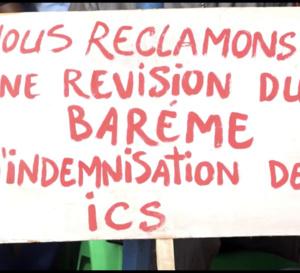 NOUS RECLAMONS
UNE REVISION DU
BARÉME
D'INDEMNISATION DE
iCS